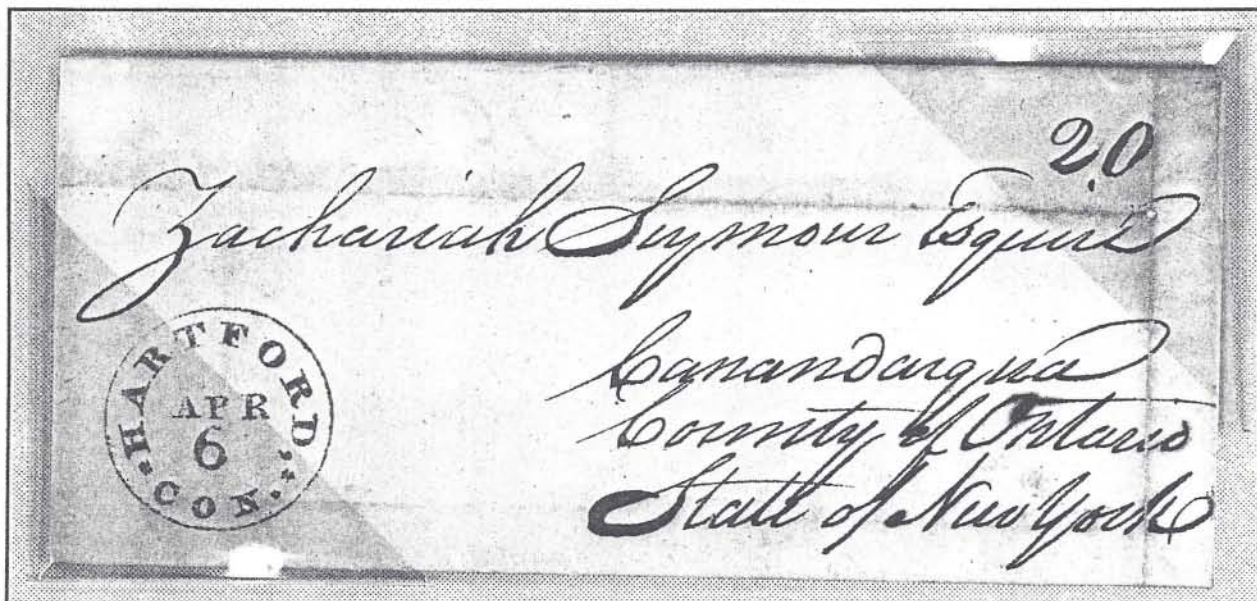 20
Zachariah Seymour Esquire
Canandargua
County of Ontario
State of New York
HARTFORD, CON.
APR
6